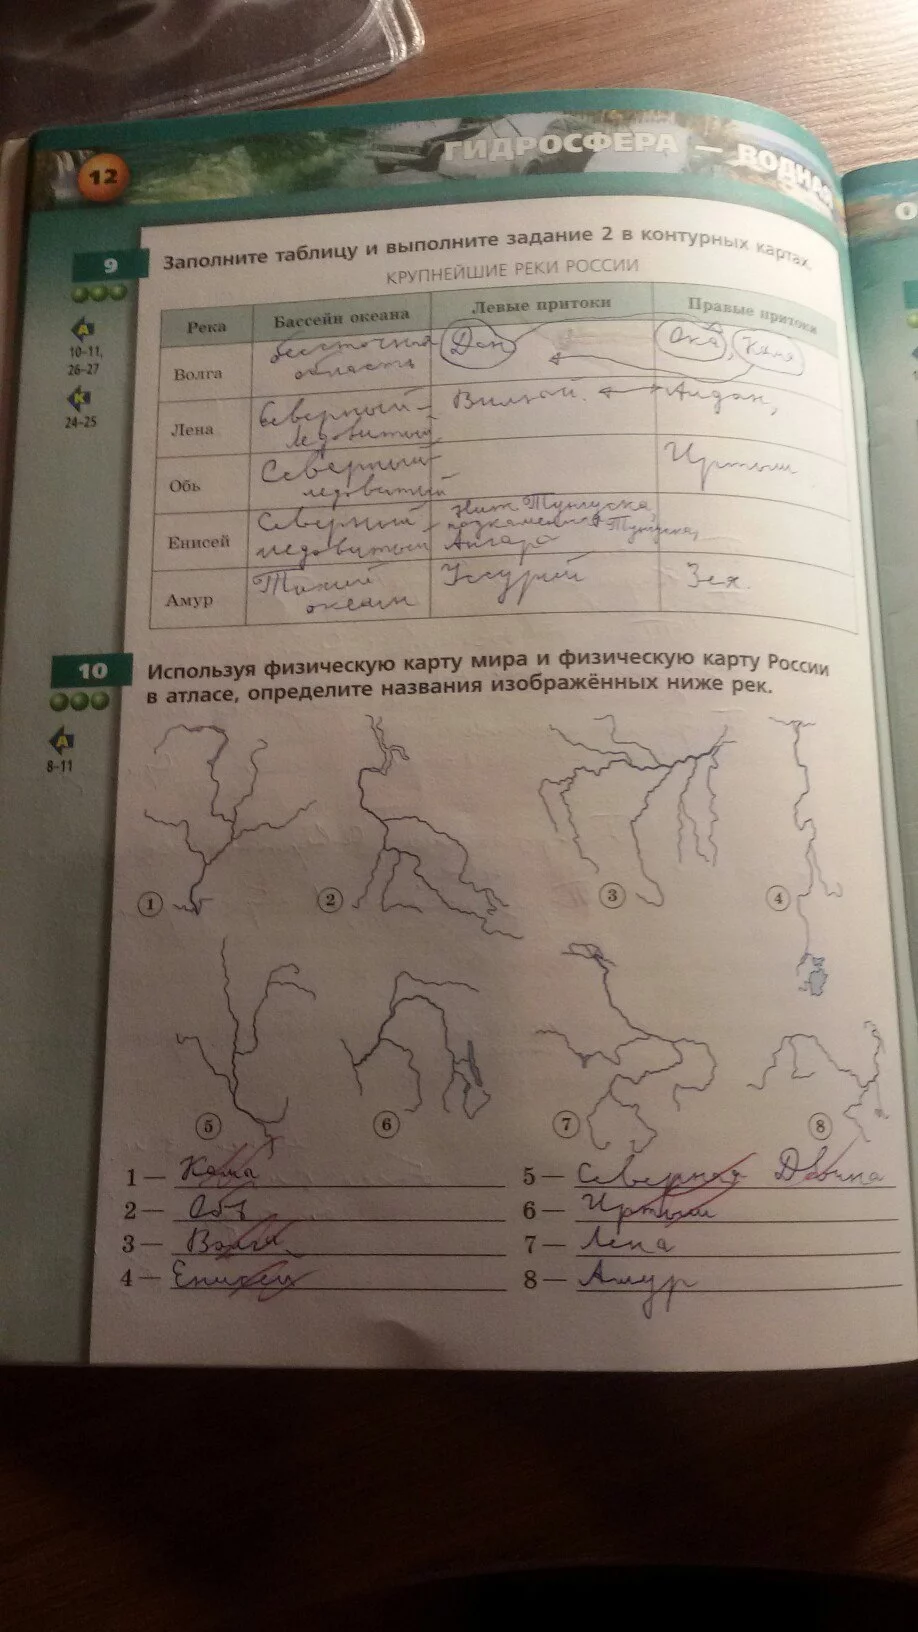 12
ГИДРОСФЕРА — ВОДНАЯ
О
9
Заполните таблицу и выполните задание 2 в контурных картах.
КРУПНЕЙШИЕ РЕКИ РОССИИ
А
10–11,
26–27
К
24–25
Река Бассейн океана Левые притоки Правые притоки
Волга бессточная область Дон Ока, Кама
Лена Северный Ледовитый Вилюй. Алдан,
Обь Северный ледовитый Иртыш
Енисей Северный ледовитый Ниж Тунгуска Тунгуска, Ангара
Амур Тихий океан Уссурий Зея.
10
Используя физическую карту мира и физическую карту России
в атласе, определите названия изображённых ниже рек.
А
8–11
1 2 3 4
5 6 7 8
1 — Кама
2 — Обь
3 — Волга
4 — Енисей
5 — Северная Двина
6 — Иртыш
7 — Лена
8 — Амур